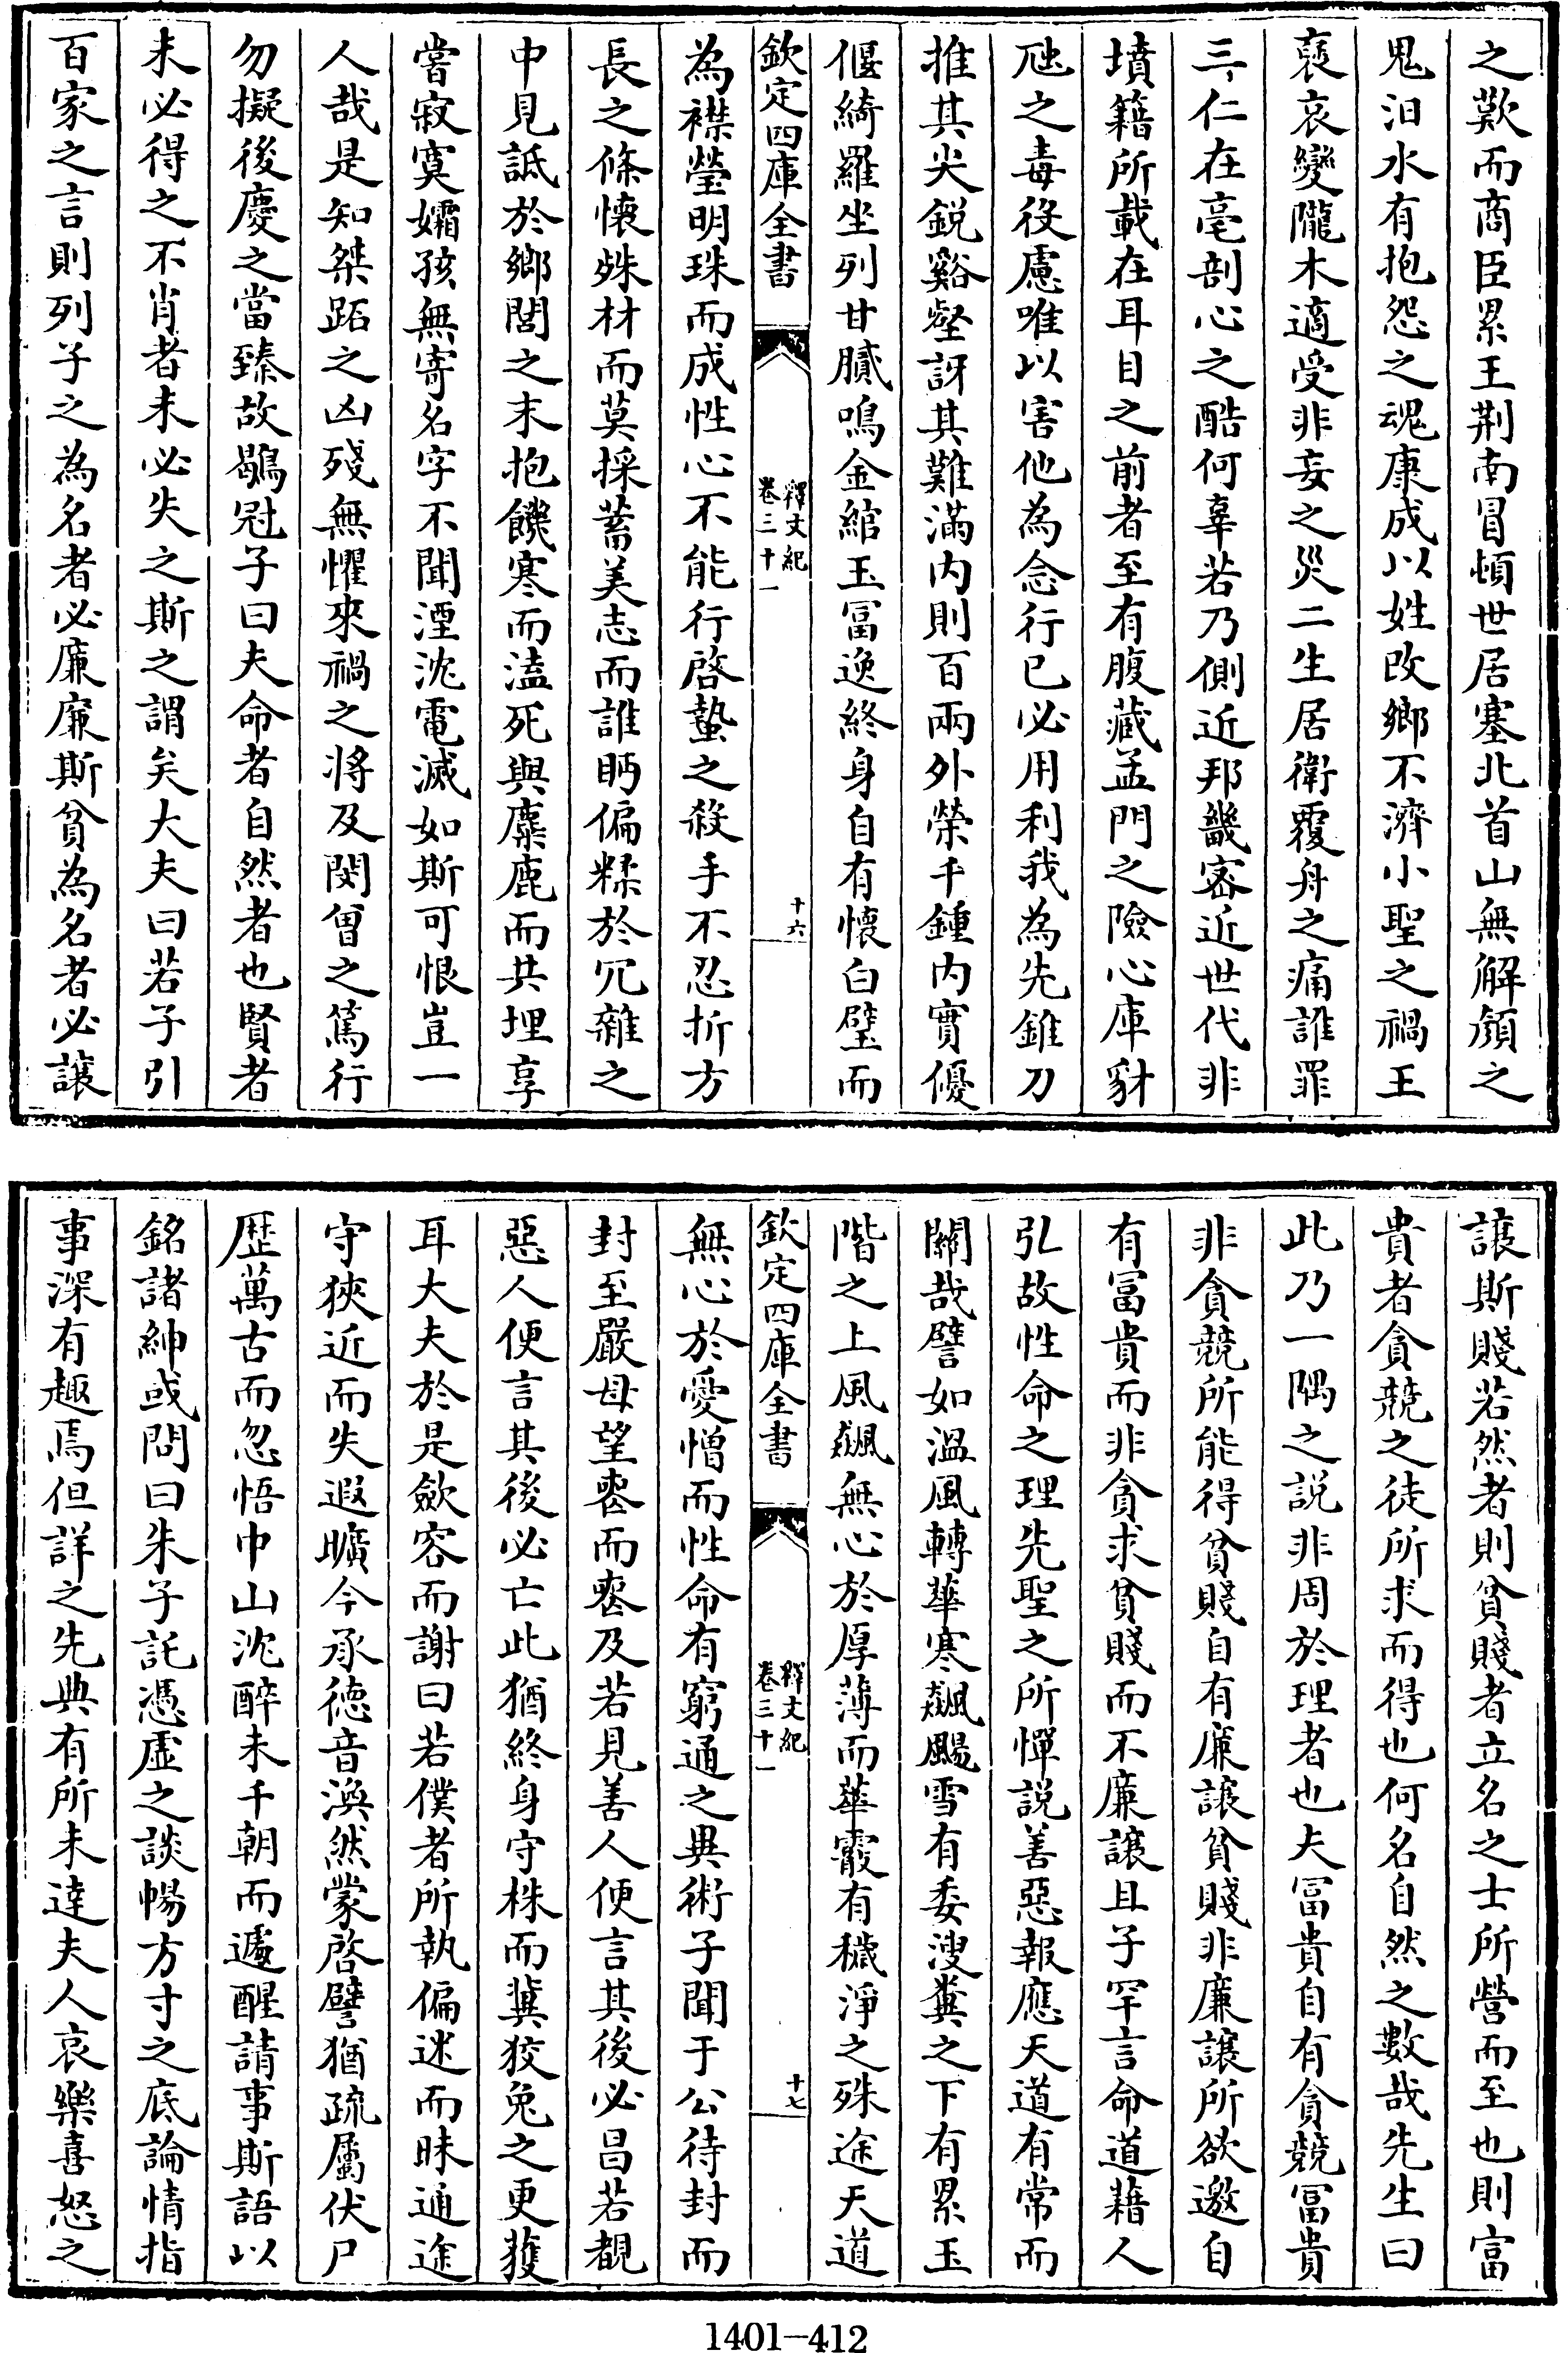 之歎而商臣累王荆南冒頓世居塞北首山無解顔之
鬼汨水有抱怨之魂康成以姓改鄉不濟小聖之禍王
裒哀變隴木適受非妄之災二生居衛覆舟之痛誰罪
三仁在亳剖心之酷何辜若乃側近邦畿密近世代非
墳籍所載在耳目之前者至有腹藏孟門之險心庫豺
虺之毒役慮唯以害他為念行已必用利我為先錐刀
推其尖銳谿壑訝其難滿内則百兩外榮千鍾内實優
偃綺羅坐列甘膩鳴金綰玉冨逸終身自有懷白璧而
欽定四庫全書
釋文紀
卷三十一
十六
為襟瑩明珠而成性心不能行啓蟄之殺手不忍折方
長之條懷殊材而莫採蓄美志而誰眄偏糅於冗雜之
中見詆於鄉閭之末抱饑寒而溘死與麋鹿而共埋享
嘗寂寞孀孩無寄名字不聞湮沈電滅如斯可恨豈一
人哉是知桀跖之凶殘無懼來禍之將及閔曾之篤行
勿擬後慶之當臻故鶡冠子曰夫命者自然者也賢者
未必得之不肖者未必失之斯之謂矣大夫曰若子引
百家之言則列子之為名者必廉廉斯貧為名者必讓
讓斯賤若然者則貧賤者立名之士所營而至也則富
貴者貪競之徒所求而得也何名自然之數哉先生曰
此乃一隅之説非周於理者也夫冨貴自有貪競冨貴
非貪競所能得貧賤自有廉讓貧賤非廉讓所欲邀自
有冨貴而非貪求貧賤而不廉讓且子罕言命道藉人
弘故性命之理先聖之所憚説善惡報應天道有常而
關哉譬如溫風轉華寒飆颺雪有委溲糞之下有累玉
階之上風飆無心於厚薄而華霰有穢淨之殊途天道
欽定四庫全書
釋文紀
卷三十一
十七
無心於愛憎而性命有窮通之異術子聞于公待封而
封至嚴母望喪而喪及若見善人便言其後必昌若覩
惡人便言其後必亡此猶終身守株而冀狡兔之更獲
耳大夫於是斂容而謝曰若僕者所執偏迷而昧通途
守狹近而失遐曠今承德音渙然蒙啓譬猶疏屬伏尸
歴萬古而忽悟中山沈醉未千朝而遽醒請事斯語以
銘諸紳或問曰朱子託憑虛之談暢方寸之底論情指
事深有趣焉但詳之先典有所未達夫人哀樂喜怒之
1401—412